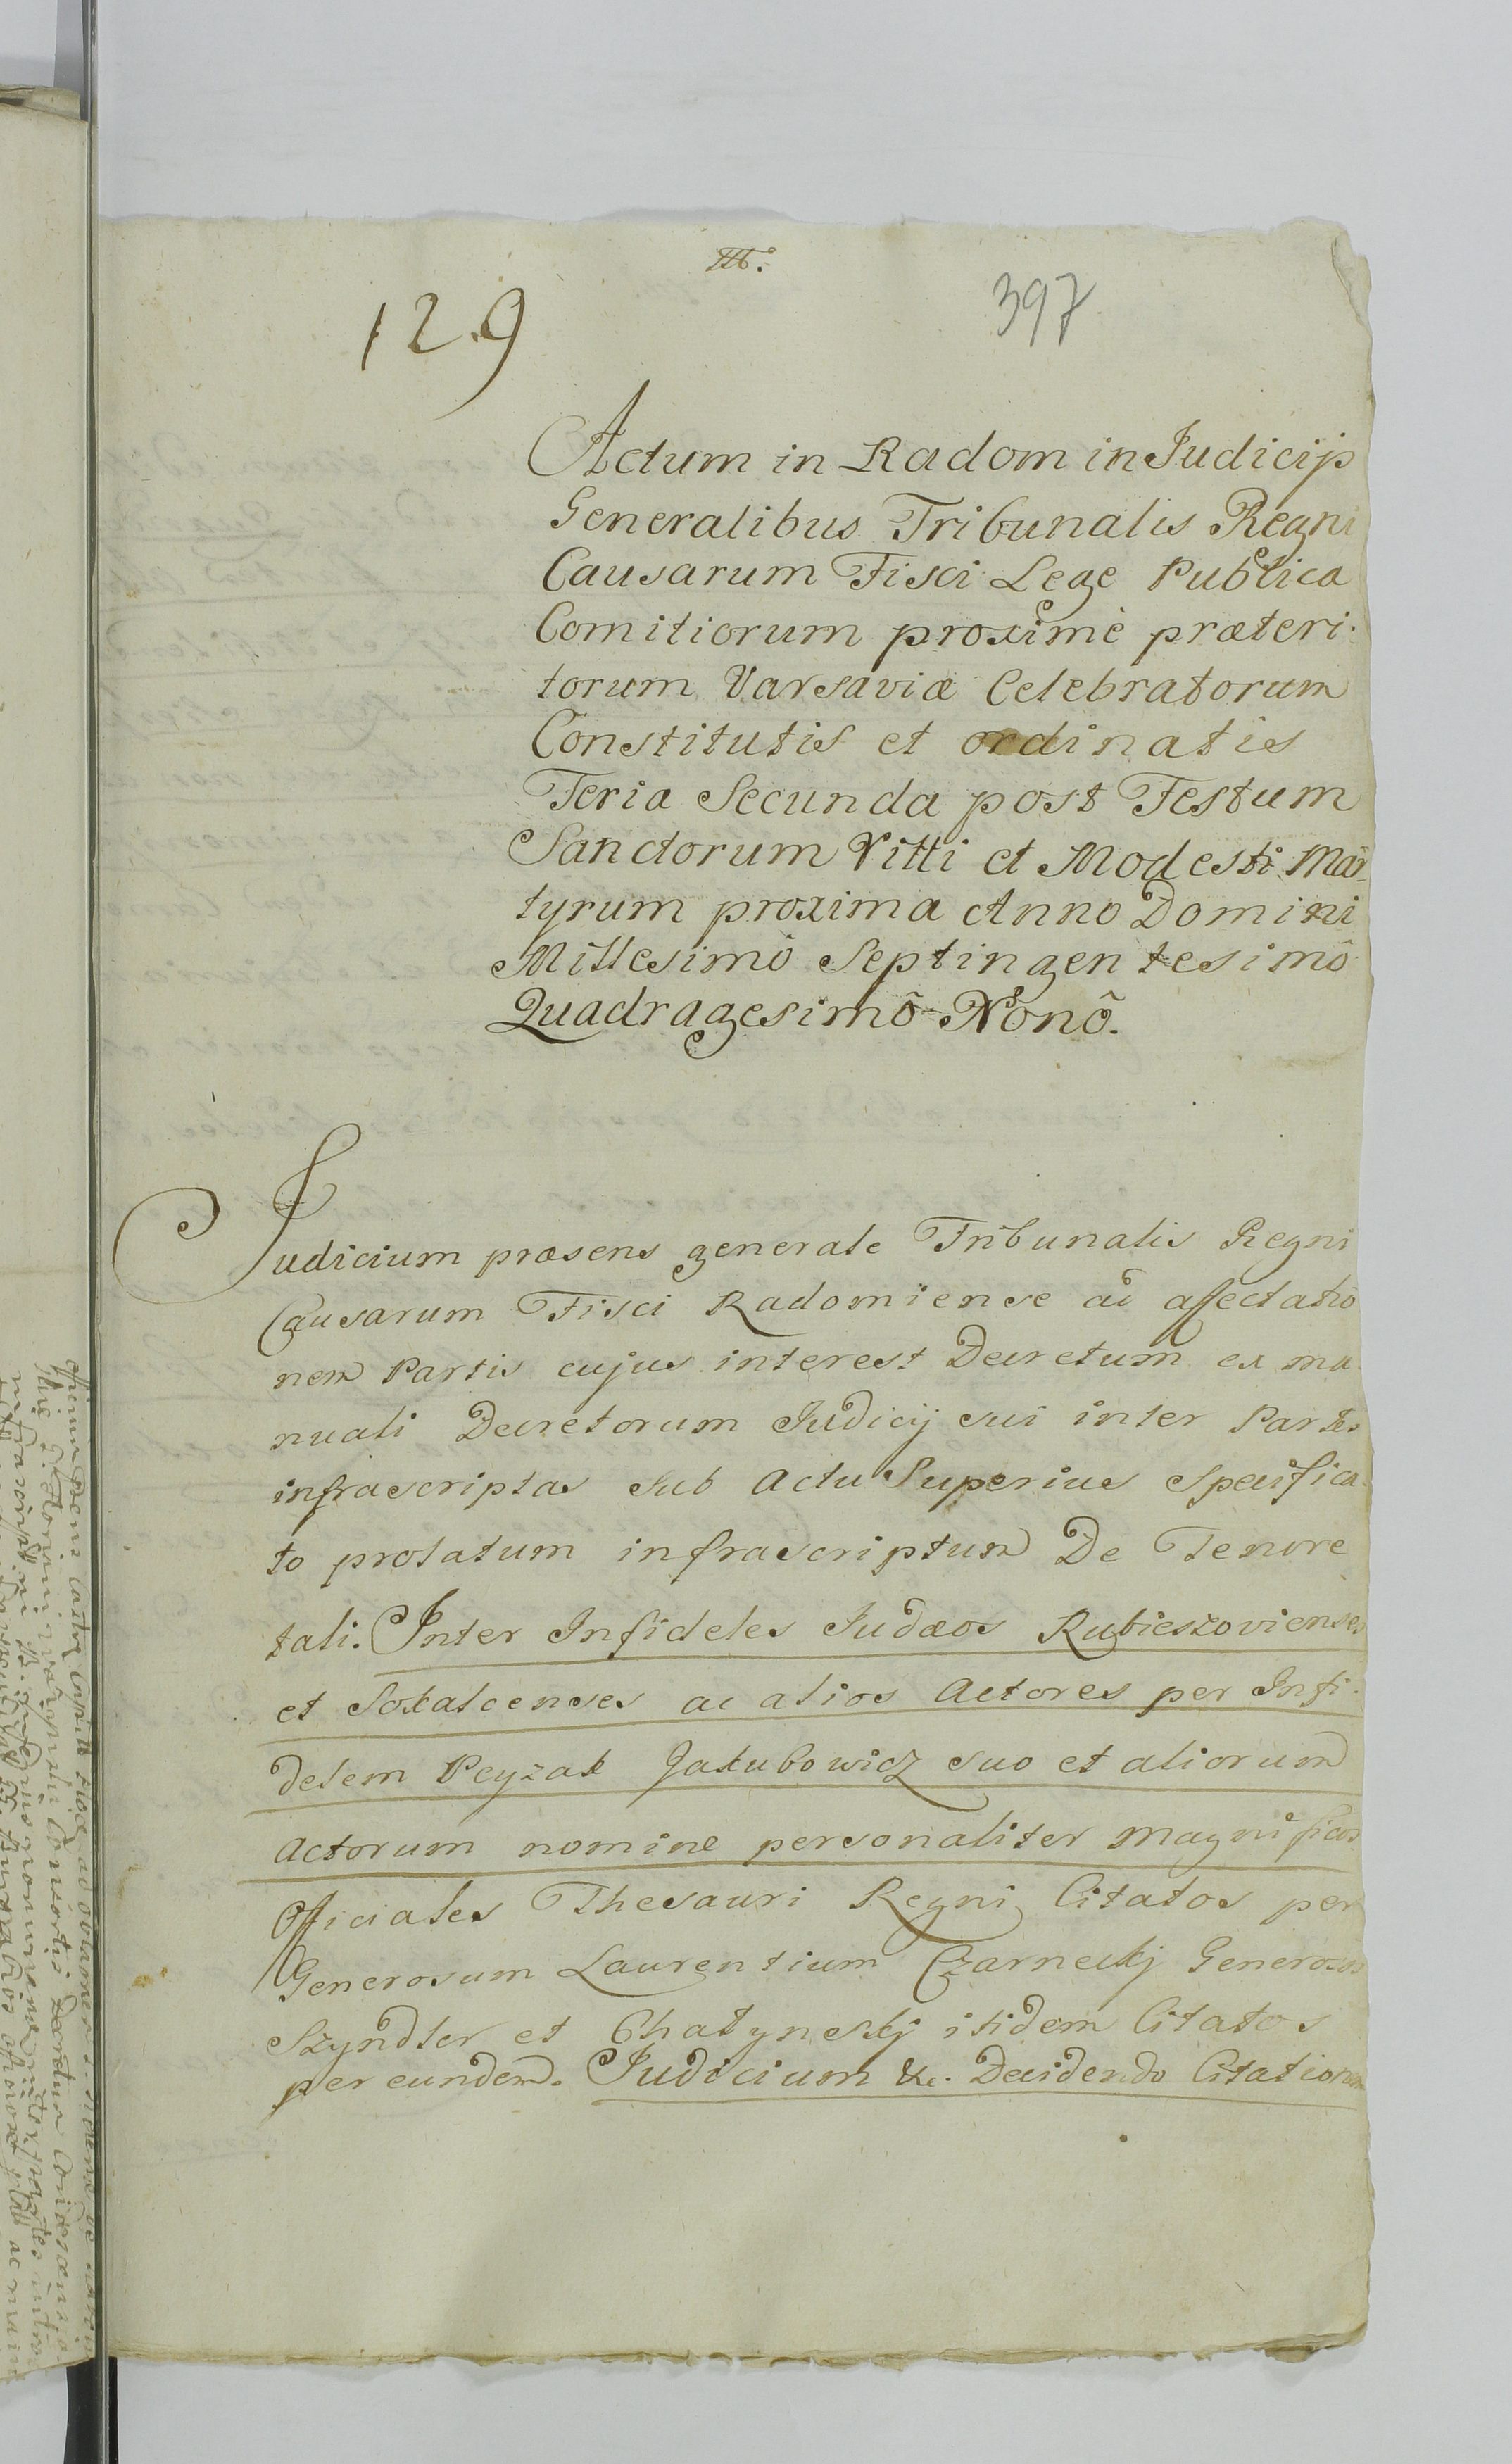 129
397
Actum in Radom in Judicijs
Generalibus Tribunalis Regni
Causarum Fisci Lege Publica
Comitiorum proximè præteri-
torum Varsaviæ Celebratorum
Constitutis et ordinatis
Feria Secunda post Festum
Sanctorum Vitti et Modesti Mar-
tyrum proxima Anno Domini
Millesimô Septingentesimô
Quadragesimô Nonô.
Judicium præsens generale Tribunalis Regni
Causarum Fisci Radomiense ad affectatio
nem Partis cujus interest Decretum ex ma
nuali Decretorum Judicij sui inter Partes
infrascriptas sub Actu Superius Specifica
to prolatum infrascriptum De Tenore
tali. Inter Infideles Judæos Rubieszovienses
et Sokalcenses ac alios Actores per Infi-
delem Peyzak Jakubowicz suo et aliorum
Actorum nomine personaliter Magnificos
Officiales Thesauri Regni Citatos per
Generosum Laurentium Czarneckj Generosos
Szyndler et Chatynskj itidem Citatos
per eundem. Judicium &c. Decidendo Citationem